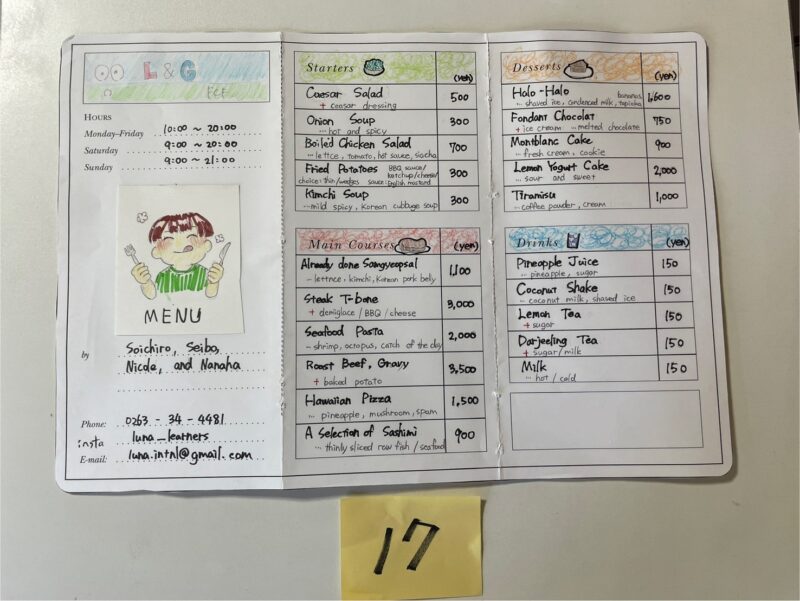 L & G
HOURS
Monday-Friday 10:00 ~ 20:00
Saturday 9:00 ~ 20:00
Sunday 9:00 ~ 21:00
MENU
by Soichiro, Seibo,
Nicole, and Nanaha
Phone: 0263 - 34 - 4481
insta luna_learners
E-mail: luna.intnl@gmail.com
Starters (yen)
Caesar Salad 500
+ ceasar dressing
Onion Soup 300
... hot and spicy
Boiled Chicken Salad 700
... lettce, tomato, hot sauce,
Fried Potatoes BBQ sauce/ 300
ketchup/cheese/
choice: thin/wedges sauce: English mustard
Kimchi Soup 300
... mild spicy, Korean cubbage soup
Main Courses (yen)
Already done Samgyeopsal 1,100
... lettnce, kimchi, Korean pork belly
Steak T-bone 3,000
+ demiglace / BBQ / cheese
Seafood Pasta 2,000
... shrimp, octropus, catch of the day
Roast Beef, Gravy 3,500
+ baked potato
Hawaiian Pizza 1,500
... pineapple, mushroom, spam
A Selection of Sashimi 900
... thinly sliced raw fish / seafood
Desserts (yen)
Halo-Halo bananas, 1,600
... shaved ice, condenced milk, tapioka
Fondant Chocolat 750
+ ice cream ... melted chocolate
Montblanc Cake 900
... fresh cream, cookie
Lemon Yogurt Cake 2,000
... sour and sweet
Tiramisu 1,000
... coffee powder, cream
Drinks (yen)
Pineapple Juice 150
... pineapple, sugar
Coconut Shake 150
... coconut milk, shased ice
Lemon Tea 150
+ sugar
Darjeeling Tea 150
+ sugar/milk
Milk 150
... hot / cold
17